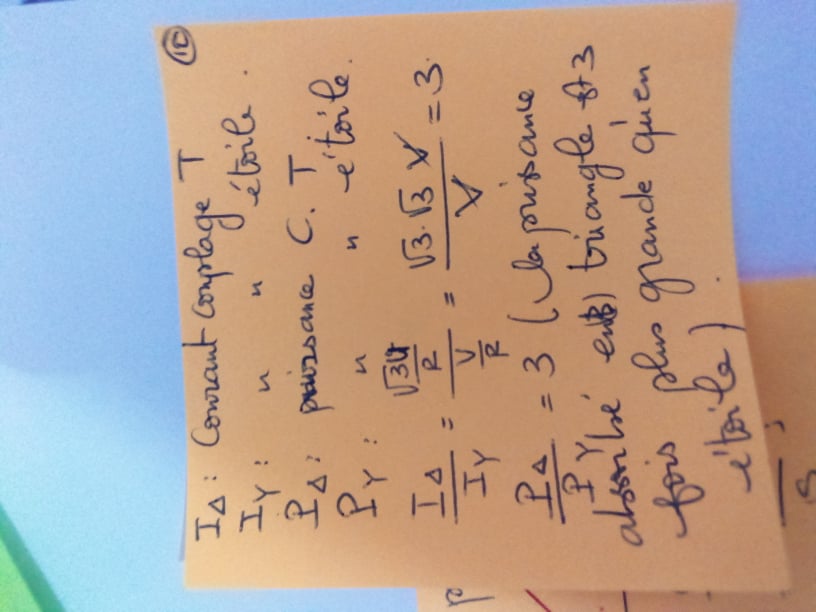 ⑩
I△ : Courant couplage T
IY : " " étoile.
P△ : puissance C. T
PY : " " étoile.
I△/IY = (√3U/R)/(V/R) = (√3.√3 V)/V = 3.
P△/PY = 3 (la puissance
absorbé en triangle et 3
fois plus grande qu'en
étoile).